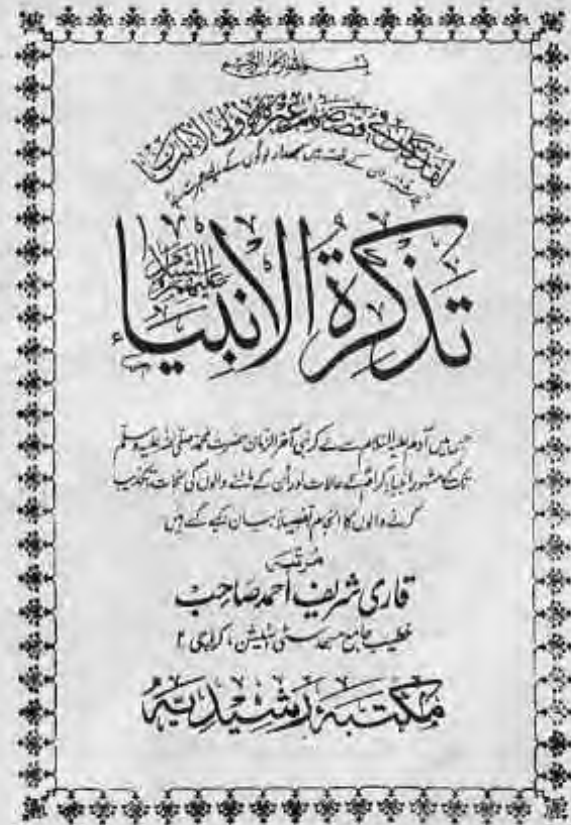 بسم اللہ الرحمن الرحیم
لقد کان فی قصصھم عبرة لاولی الالباب
ان کے قصہ میں سمجھدار لوگوں کے لیے
تذکرۃ الانبیاء
علیہم السلام
جس میں آدم علیہ السلام سے لے کر نبی آخر الزمان حضرت محمد صلی اللہ علیہ وسلم
تک کے مشہور انبیاء کرام کے حالات اور اُن کے ماننے والوں کی نجات، تکذیب
کرنے والوں کا انجام تفصیلاً بیان کیے گئے ہیں
مرتبہ
قاری شریف احمد صاحب
خطیب جامع مسجد سٹی اسٹیشن، کراچی ۲
مکتبہ رشیدیہ